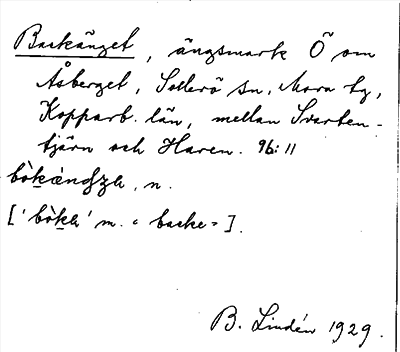 Backänget, ängsmark Ö om
Åsberget, Sollerö sn, Mora tg,
Kopparb. län, mellan Svarten-
tjärn och Haren. 96:11
n.
['bòka' m. "backe"].
B. Lindén 1929.